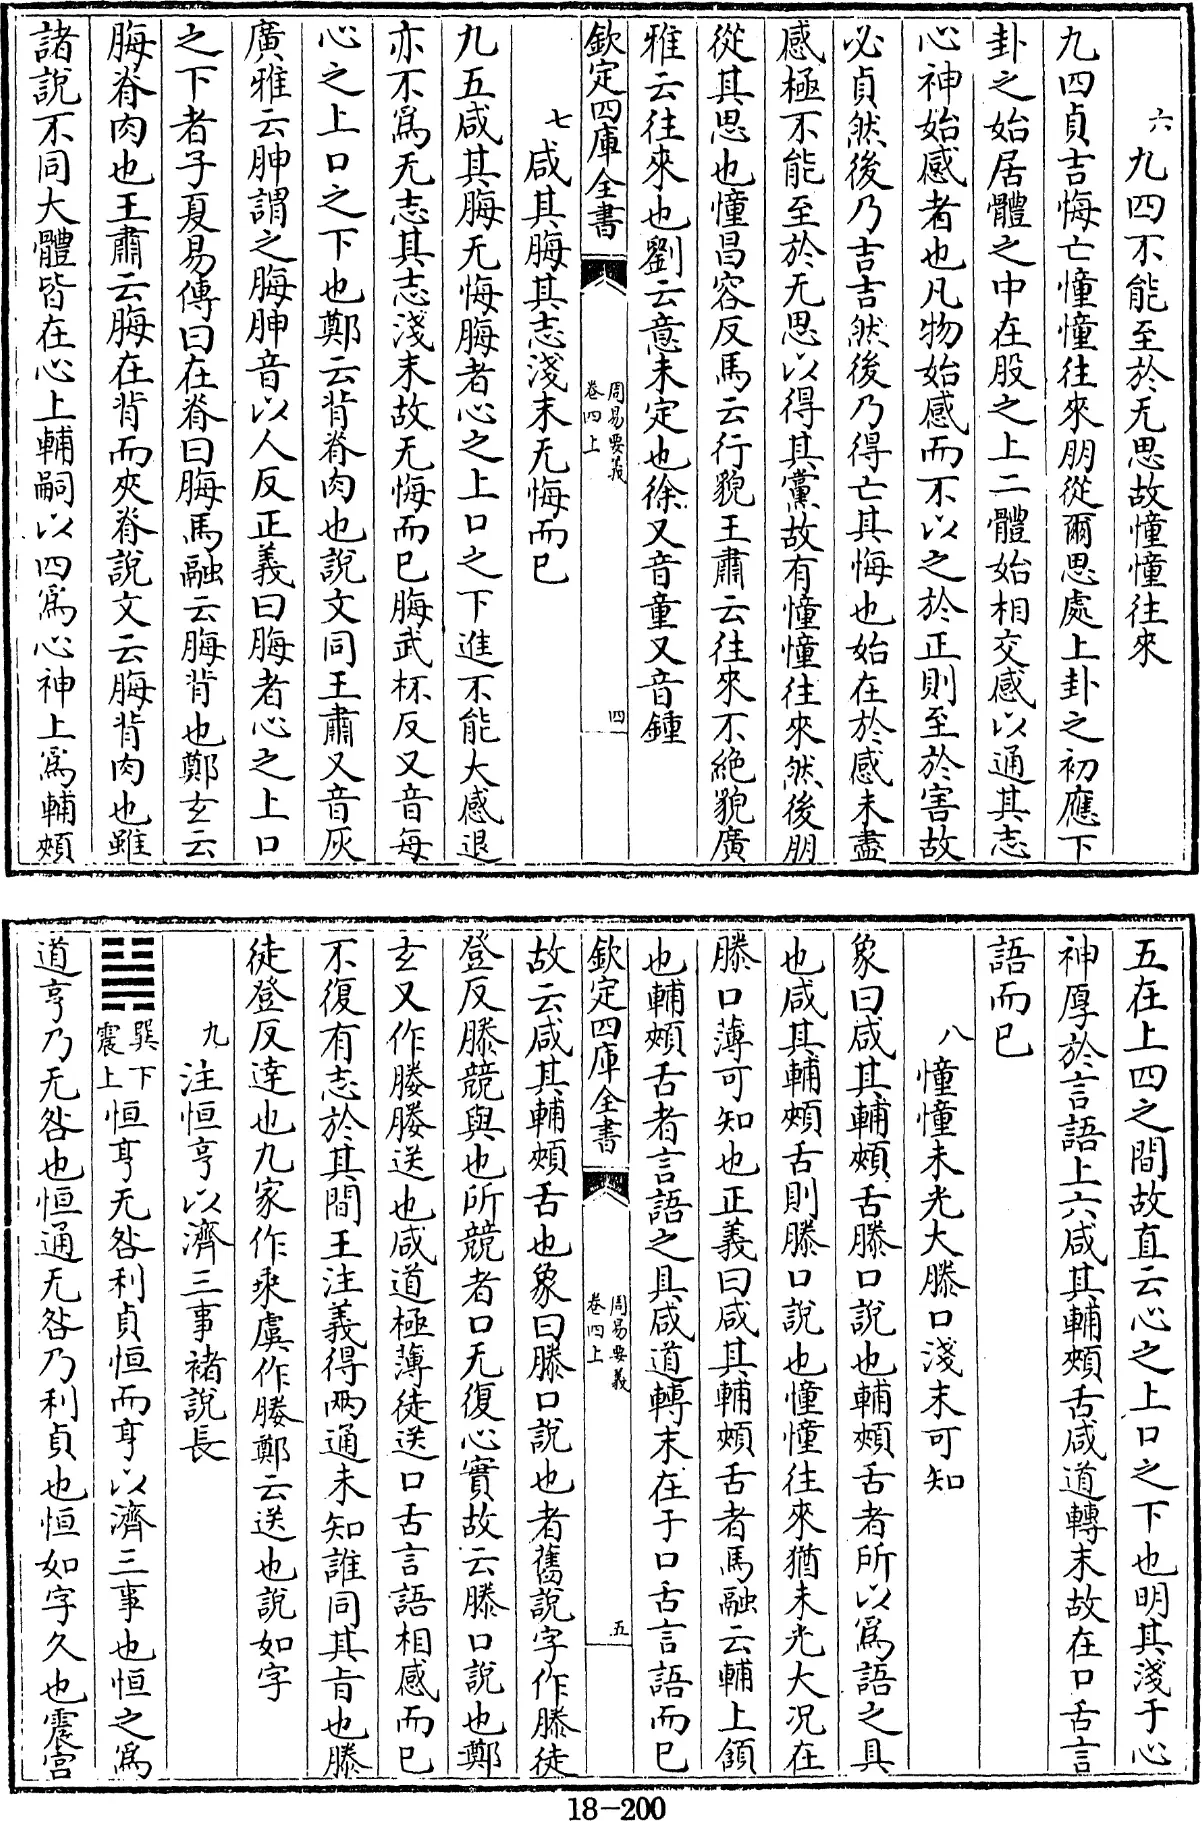 六九四不能至於无思故憧憧往來
九四貞吉悔亡憧憧往來朋從爾思處上卦之初應下
卦之始居體之中在股之上二體始相交感以通其志
心神始感者也凡物始感而不以之於正則至於害故
必貞然後乃吉吉然後乃得亡其悔也始在於感未盡
感極不能至於无思以得其黨故有憧憧往來然後朋
從其思也憧昌容反馬云行貌王肅云往來不絶貌廣
雅云往來也劉云意未定也徐又音童又音鍾
欽定四庫全書
周易要義
卷四上
四
七咸其脢其志淺末无悔而已
九五咸其脢无悔脢者心之上口之下進不能大感退
亦不爲无志其志淺末故无悔而已脢武杯反又音每
心之上口之下也鄭云背脊肉也說文同王肅又音灰
廣雅云胂謂之脢胂音以人反正義曰脢者心之上口
之下者子夏易傳曰在脊曰脢馬融云脢背也鄭玄云
脢脊肉也王肅云脢在背而夾脊說文云脢背肉也雖
諸說不同大體皆在心上輔嗣以四爲心神上爲輔頰
五在上四之間故直云心之上口之下也明其淺于心
神厚於言語上六咸其輔頰舌咸道轉末故在口舌言
語而已
八憧憧未光大滕口淺末可知
象曰咸其輔頰舌滕口說也輔頰舌者所以爲語之具
也咸其輔頰舌則滕口說也憧憧往來猶未光大况在
滕口薄可知也正義曰咸其輔頰舌者馬融云輔上頷
也輔頰舌者言語之具咸道轉末在于口舌言語而已
欽定四庫全書
周易要義
卷四上
五
故云咸其輔頰舌也象曰滕口說也者舊說字作滕徒
登反滕競與也所競者口无復心實故云滕口說也鄭
玄又作媵媵送也咸道極薄徒送口舌言語相感而已
不復有志於其間王注義得兩通未知誰同其旨也滕
徒登反達也九家作乘虞作媵鄭云送也說如字
九注恒亨以濟三事褚說長
䷟巽下震上恒亨无咎利貞恒而亨以濟三事也恒之爲
道亨乃无咎也恒通无咎乃利貞也恒如字久也震宫
18-200